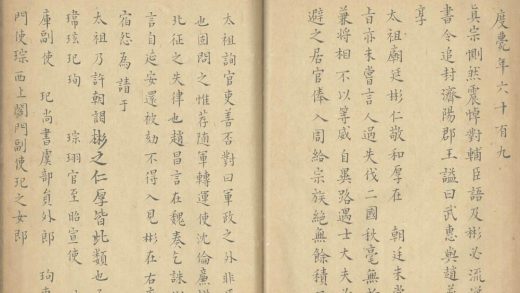 度薨年六十有九
真宗惻然震悼對輔臣語及彬必流涕
書令追封濟陽郡王諡曰武惠與趙普
享
太祖廟廷彬仁敬和厚在 朝廷未嘗
旨亦未嘗言人過失伐二國秋毫無
兼將相不以等威自異路遇士大夫
避之居官俸入周給宗族絕無餘積
太祖詢官吏善否對曰軍政之外非
也固問之惟荐随軍轉運使沈倫廉
北征之失律也趙昌言在魏奏乞誅
言自延安還被劾不得入見彬在右
宿怨為請于
太祖乃許朝謁彬之仁厚皆此類也
瑋玹玘珣 琮珝官至昭宣使
庫副使 玘尚書虞部員外郎 珣
門使琮西上閤門副使玘之女郎